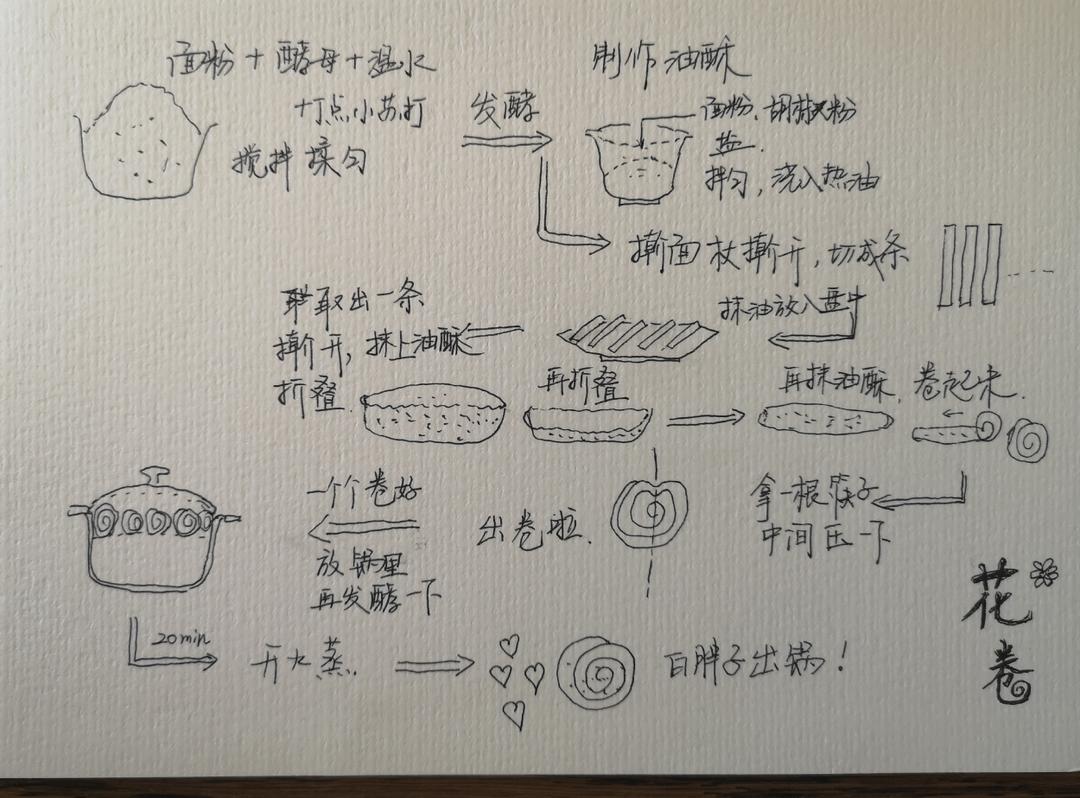 面粉+酵母+温水
+打点小苏打
搅拌揉匀
发酵
制作油酥
面粉、胡椒粉
盐.
拌匀,浇入热油
擀面杖擀开,切成条
抹油放入盘中
取出一条
擀开,抹上油酥
折叠.
再折叠
再抹油酥、卷起来.
拿一根筷子
中间压一下
出卷啦.
一个个卷好
放锅里
再发酵一下
20min
开火蒸.
白胖子出锅!
花
卷